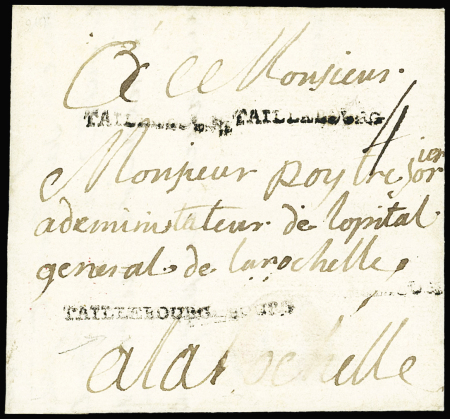 A Monsieur
TAILLEBOURG TAILLEBOURG
4
Monsieur poy tresorier
administateur de lopital
general de larochelle
TAILLEBOURG
alarochelle